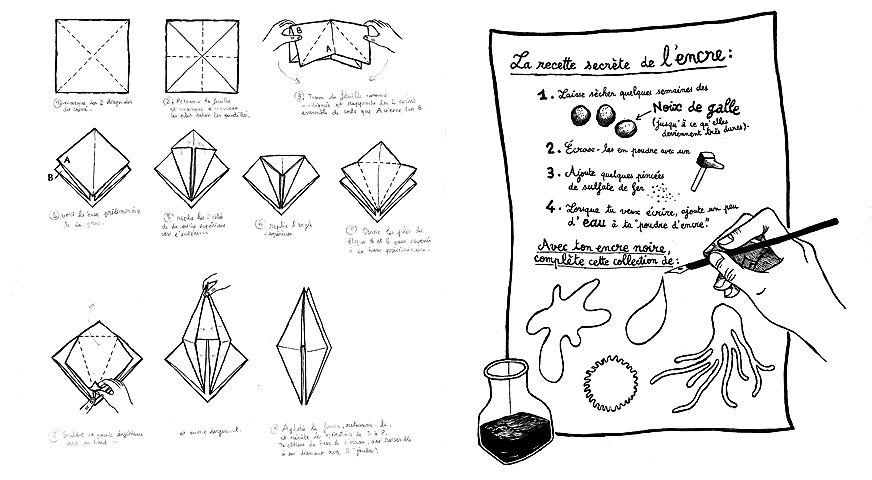 ① marque les 2 diagonales
du carré.
② Retourne la feuille
et marque à nouveau
les plis selon les pointillés.
③ Tiens la feuille comme
indiqué et rapproche les 4 coins
ensemble de sorte que A vienne sur B
B
A
A
B
④ voici la base préliminaire
de la grue.
⑤ Replie les 2 côtés
de la couche supérieure
vers l'intérieur.
⑥ replie l'angle
supérieur
⑦ Ouvre les plis des
étapes 5 et 6 pour revenir
à la base préliminaire.
Soulève la pointe inférieure
vers le haut
et ouvre largement.
Aplatis la forme, retourne-la,
et répète les opérations de 5 à 8.
Tu obtiens la base de l'oiseau, qui ressemble
à un diamant avec 2 "jambes".
La recette secrète de l'encre :
1. Laisse sècher quelques semaines des
Noix de galle
(jusqu'à ce qu'elles
deviennent très dures).
2. Écrase-les en poudre avec un
3. Ajoute quelques pincées
de sulfate de fer
4. Lorsque tu veux écrire, ajoute un peu
d'eau à ta "poudre d'encre".
Avec ton encre noire,
complète cette collection de :